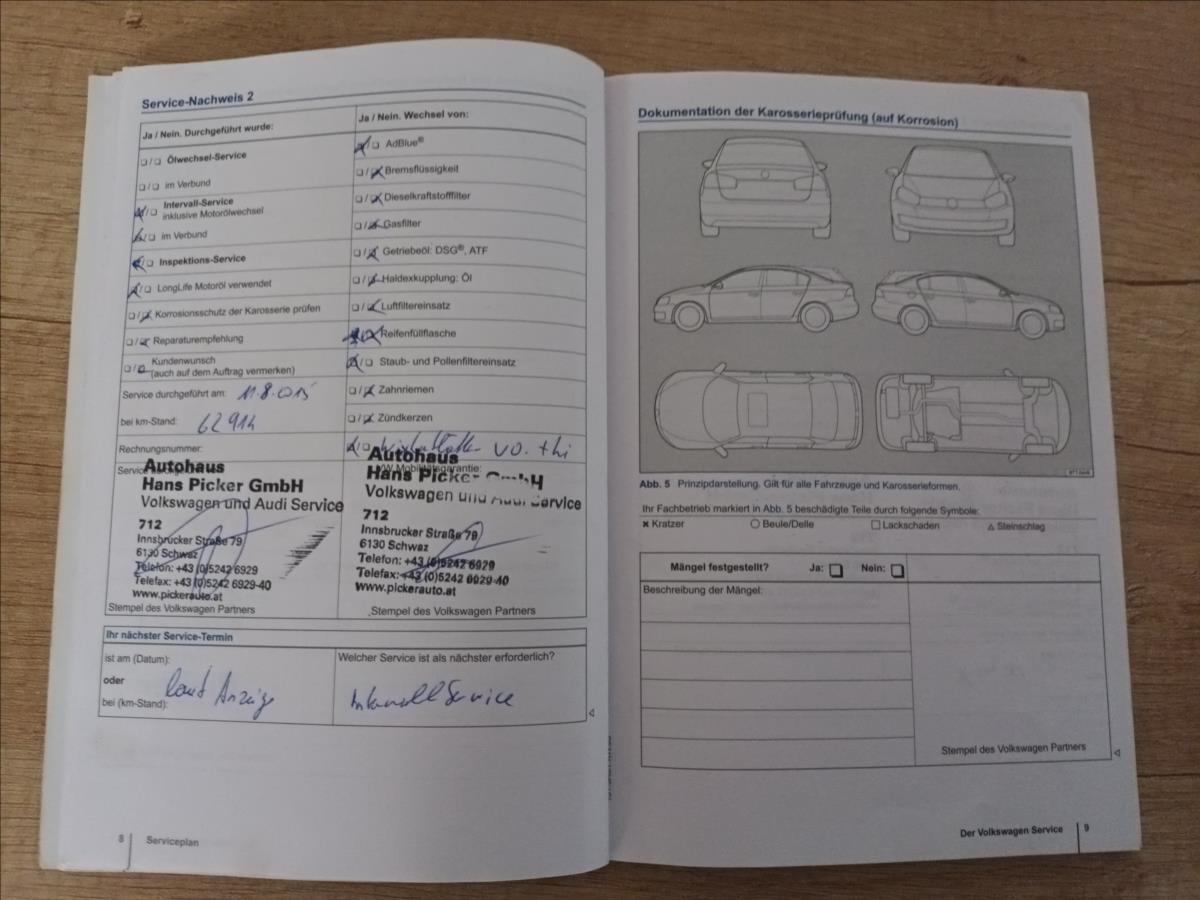 Service-Nachweis 2
Ja / Nein. Durchgeführt wurde:
❑/❑ Ölwechsel-Service
❑/❑ im Verbund
☒/❑ Intervall-Service
inklusive Motorölwechsel
☒/❑ im Verbund
☒/❑ Inspektions-Service
☒/❑ LongLife Motoröl verwendet
❑/☒ Korrosionsschutz der Karosserie prüfen
❑/☒ Reparaturempfehlung
❑/☒ Kundenwunsch
(auch auf dem Auftrag vermerken)
Service durchgeführt am: 11.8.015
bei km-Stand: 62914
Rechnungsnummer:
Autohaus
Hans Picker GmbH
Volkswagen und Audi Service
712
Innsbrucker Straße 79
6130 Schwaz
Telefon: +43 (0)5242 6929
Telefax: +43 (0)5242 6929-40
www.pickerauto.at
Stempel des Volkswagen Partners
Ja / Nein. Wechsel von:
☒/❑ AdBlue®
❑/☒ Bremsflüssigkeit
❑/☒ Dieselkraftstofffilter
❑/☒ Gasfilter
❑/☒ Getriebeöl: DSG®, ATF
❑/☒ Haldexkupplung: Öl
❑/☒ Luftfiltereinsatz
☒/☒ Reifenfüllflasche
☒/❑ Staub- und Pollenfiltereinsatz
❑/☒ Zahnriemen
❑/☒ Zündkerzen
☒/❑ vo. + hi
Mobilitätsgarantie:
Autohaus
Hans Picker GmbH
Volkswagen und Audi Service
712
Innsbrucker Straße 79
6130 Schwaz
Telefon: +43 (0)5242 6929
Telefax: +43 (0)5242 6929-40
www.pickerauto.at
Stempel des Volkswagen Partners
Ihr nächster Service-Termin
ist am (Datum):
oder
bei (km-Stand):
laut Anzeige
Welcher Service ist als nächster erforderlich?
Intervall Service
8 Serviceplan
Dokumentation der Karosserieprüfung (auf Korrosion)
Abb. 5 Prinzipdarstellung. Gilt für alle Fahrzeuge und Karosserieformen.
Ihr Fachbetrieb markiert in Abb. 5 beschädigte Teile durch folgende Symbole:
× Kratzer ○ Beule/Delle □ Lackschaden △ Steinschlag
Mängel festgestellt? Ja: ❑ Nein: ❑
Beschreibung der Mängel:
Stempel des Volkswagen Partners
Der Volkswagen Service 9